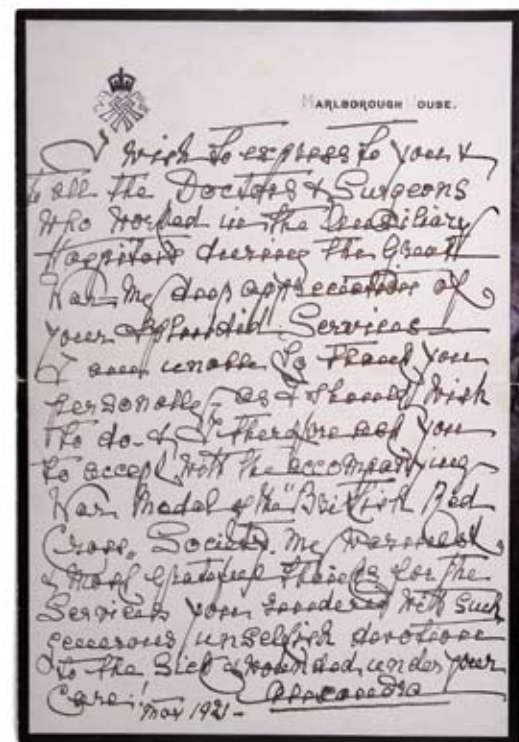 MARLBOROUGH HOUSE.
I wish to express to you &
to all the Doctors & Surgeons
who worked in the Auxiliary
Hospitals during the Great
War, my deep appreciation of
your splendid Services
I am unable to thank you
personally, as I should wish
to do. & I therefore ask you
to accept with the accompanying
War Medal of the "British Red
Cross. Society. my warmest
& most grateful thanks for the
Services you rendered with such
generous unselfish devotion
to the Sick & wounded under your
Care!
Alexandra
1921-